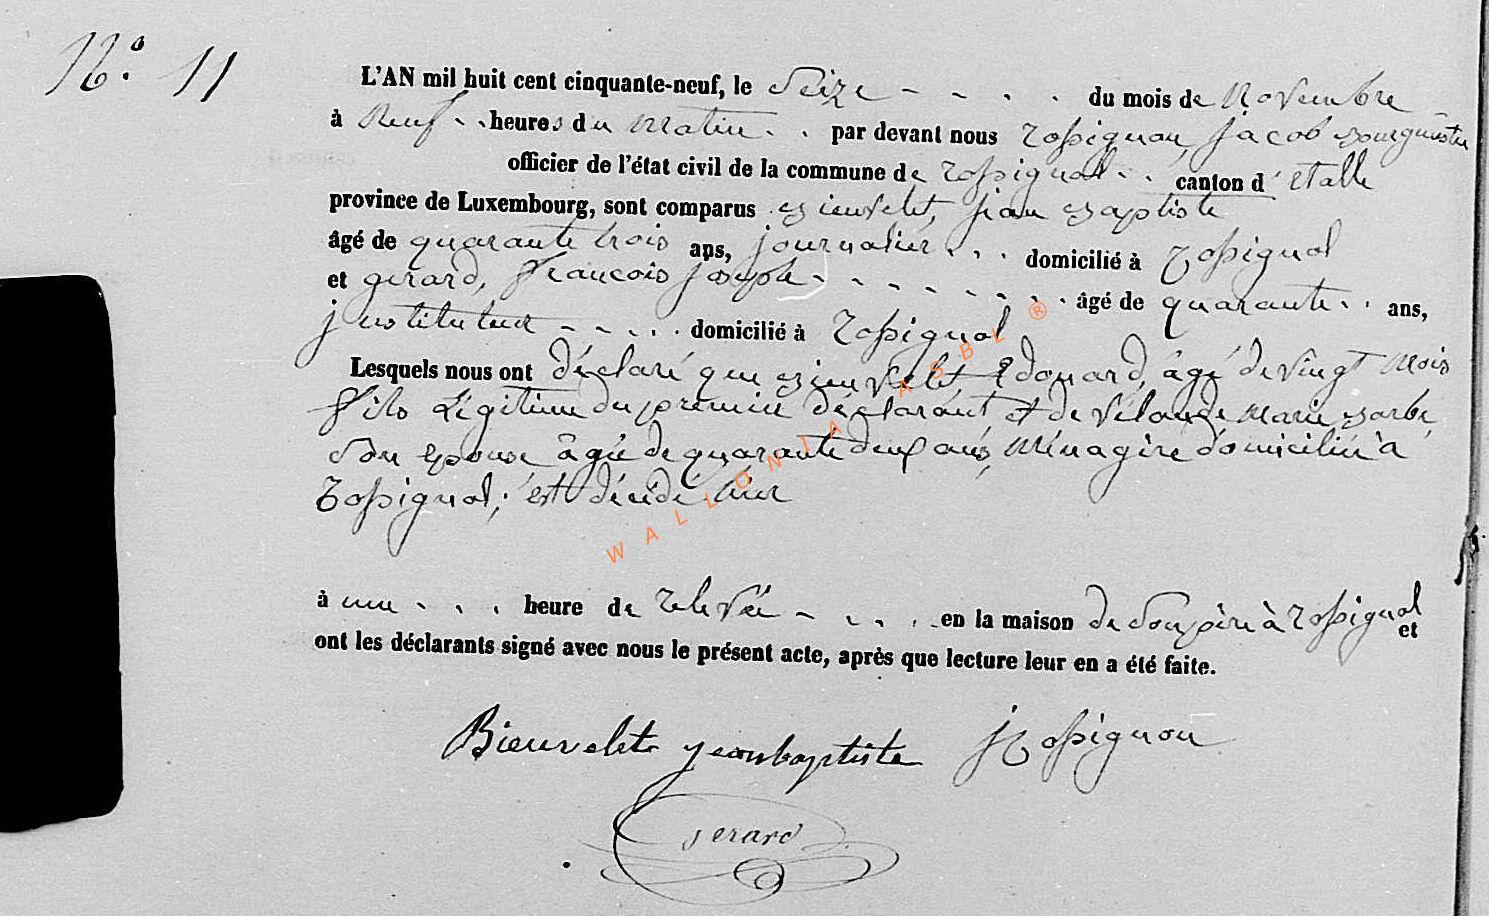 N° 11
L'AN mil huit cent cinquante-neuf, le Seize - - - - du mois de Novembre
à Neuf - - heures du matin - - par devant nous Rossignon, Jacob Bourgmestre
officier de l'état civil de la commune de Rossignol - - canton d'Etalle
province de Luxembourg, sont comparus Bienvelet, jean Baptiste
âgé de quarante trois ans, journalier - - - domicilié à Rossignol
et gerard, francois joseph - - - - - - - - - âgé de quarante - - ans,
instituteur - - - - - domicilié à Rossignol
Lesquels nous ont déclaré que Bienvelet, Edouard, agé de vingt mois
fils légitime du premier déclarant et de marie Barbe,
son epouse âgée de quarante deux ans, ménagère domiciliée à
Rossignol, est décédé hier
à une - - - heure de relevée - - - - en la maison de son père à Rossignol et
ont les déclarants signé avec nous le présent acte, après que lecture leur en a été faite.
Bienvelet jean baptiste J Rossignon
gerard
WALLONIA ASBL ®